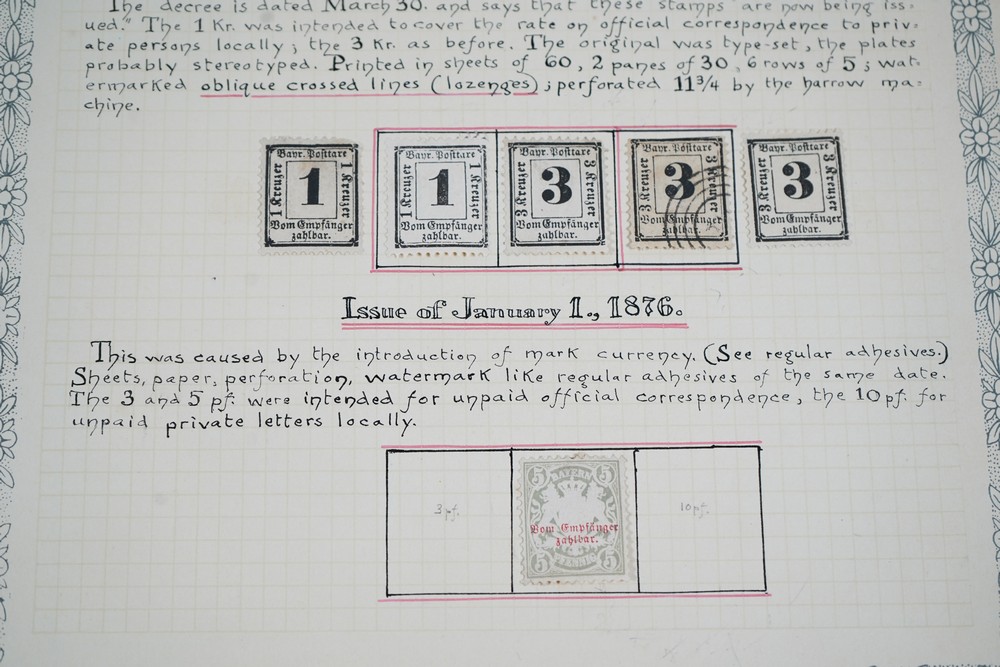 The decree is dated March 30. and says that "these stamps are now being iss-
ued." The 1 Kr. was intended to cover the rate on official correspondence to priv-
ate persons locally; the 3 Kr. as before. The original was type-set, the plates
probably stereotyped. Printed in sheets of 60, 2 panes of 30, 6 rows of 5; wat-
ermarked oblique crossed lines (lozenges); perforated 11 3/4 by the harrow ma-
chine.
Bayr. Posttaxe
1 Kreuzer
1
1 Kreuzer
Vom Empfänger
zahlbar.
Bayr. Posttaxe
1 Kreuzer
1
1 Kreuzer
Vom Empfänger
zahlbar.
Bayr. Posttaxe
3 Kreuzer
3
3 Kreuzer
Vom Empfänger
zahlbar.
Bayr. Posttaxe
3 Kreuzer
3
3 Kreuzer
Vom Empfänger
zahlbar.
Bayr. Posttaxe
3 Kreuzer
3
3 Kreuzer
Vom Empfänger
zahlbar.
Issue of January 1., 1876.
This was caused by the introduction of mark currency. (See regular adhesives.)
Sheets, paper, perforation, watermark like regular adhesives of the same date.
The 3 and 5 pf. were intended for unpaid official correspondence, the 10 pf. for
unpaid private letters locally.
3 pf.
5 BAYERN 5
Vom Empfänger
zahlbar.
5 PFENNIG 5
10 pf.